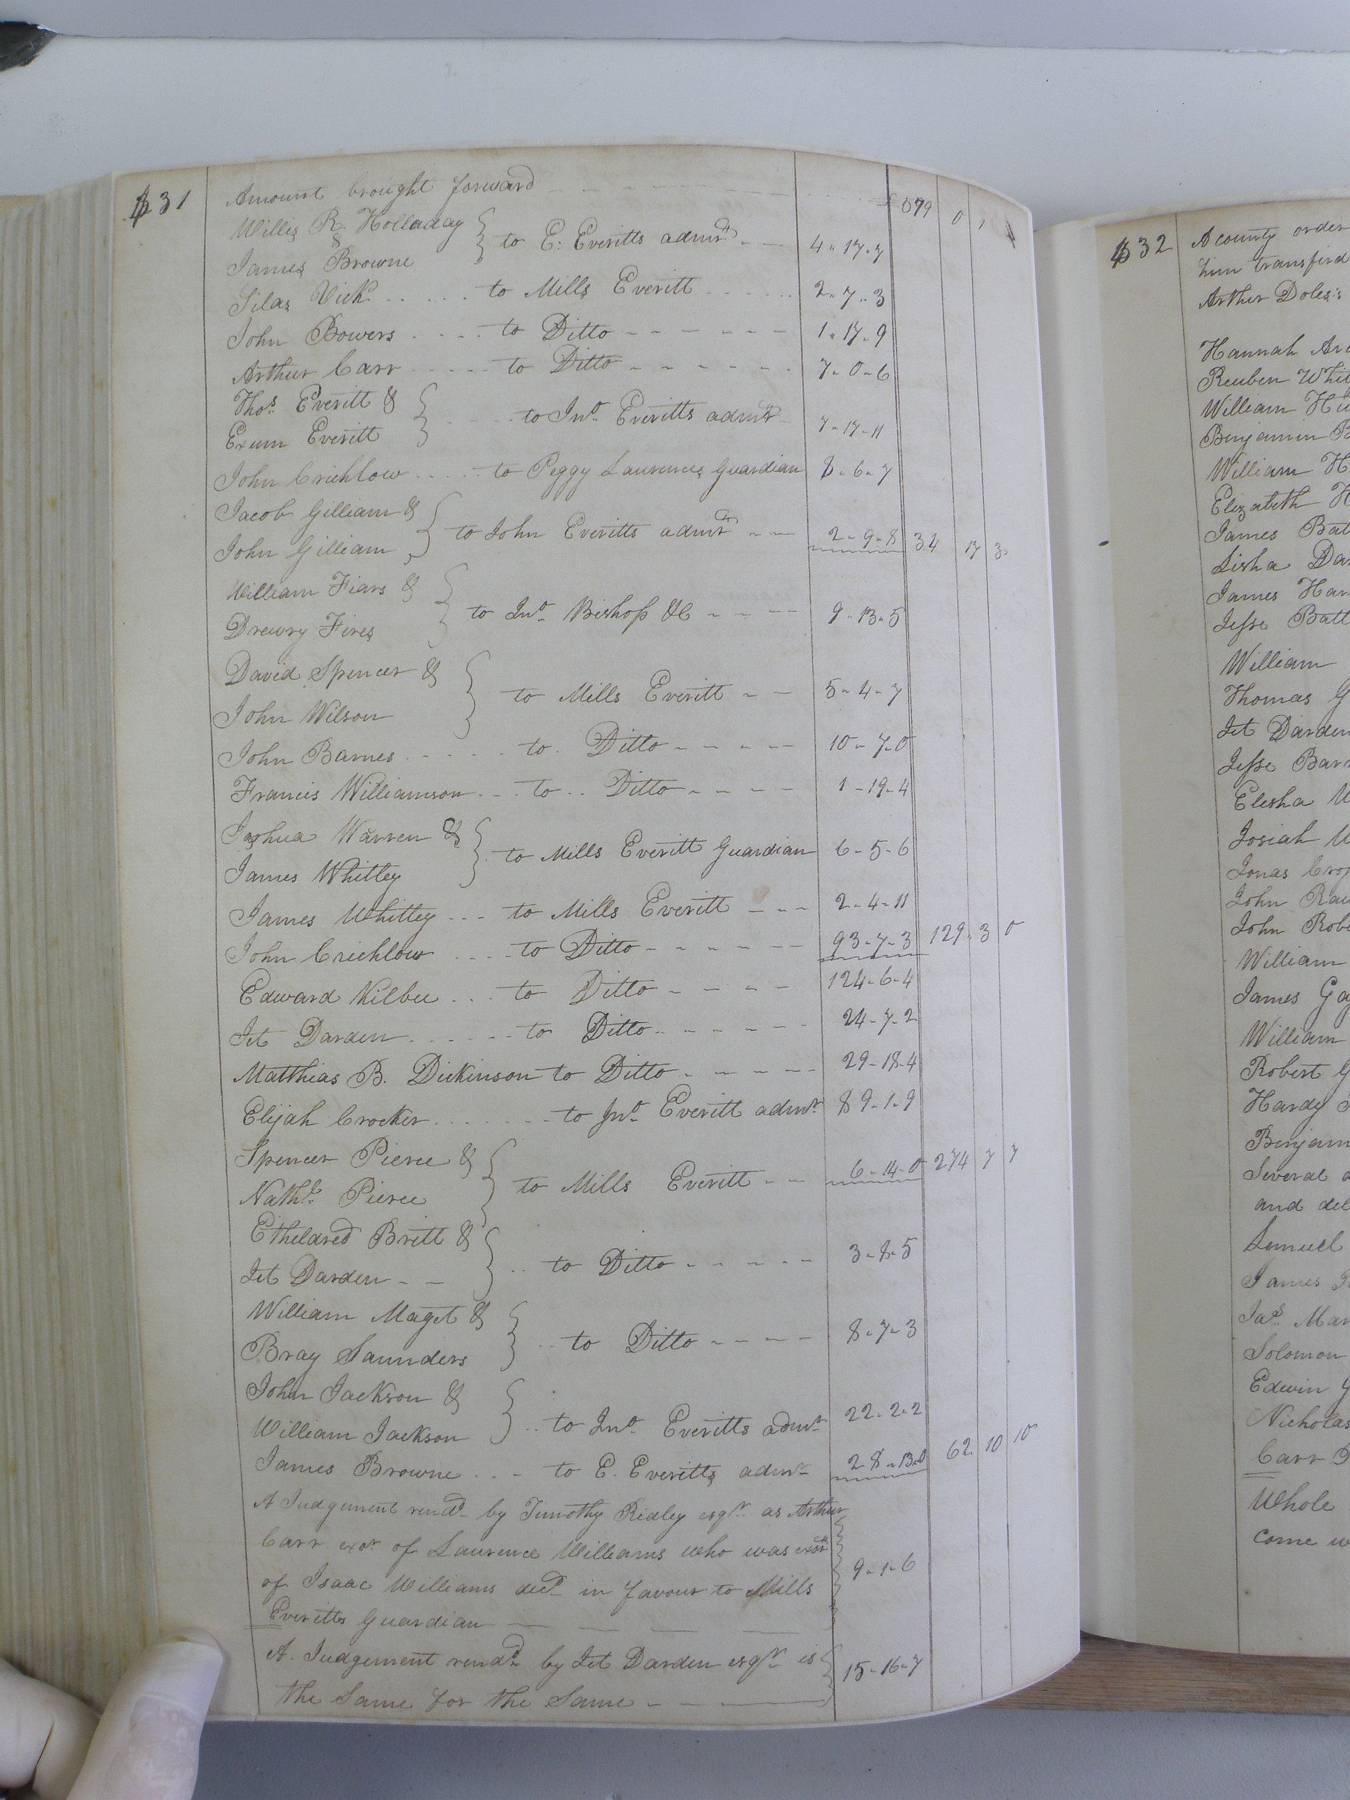 $31
Amount brought forward 579 0 1
Willis R. Holladay &
James Browne } to E: Everitts admr 4-17-7
Silas Vick to Mills Everitt 2-7-3
John Bowers to Ditto 1-17-9
Arthur Carr to Ditto 7-0-6
Thos. Everitt &
Exum Everitt } to Jno. Everitts admr 7-17-11
John Crichlow to Peggy Laurences Guardian 8-6-7
Jacob Gilliam &
John Gilliam } to John Everitts admr 2-9-8 34 17 3
William Fiars &
Drewry Fires } to Jno. Bishop &C 9-13-5
David Spencer &
John Wilson } to Mills Everitt 5-4-7
John Barnes to Ditto 10-7-0
Francis Williamson to Ditto 1-19-4
Joshua Warren &
James Whitley } to Mills Everitt Guardian 6-5-6
James Whitley to Mills Everitt 2-4-11
John Crichlow to Ditto 93-7-3 129 3 0
Edward Kilbee to Ditto 124-6-4
Jet Darden to Ditto 24-7-2
Matthias B. Dickinson to Ditto 29-18-4
Elijah Crocker to Jno. Everitt admr 89-1-9
Spencer Pierce &
Nathl. Pierce } to Mills Everitt 6-14-0 274 7 7
Etheldred Britt &
Jet Darden } to Ditto 3-8-5
William Maget &
Bray Saunders } to Ditto 8-7-3
John Jackson &
William Jackson } to Jno. Everitts admr 22-2-2
James Browne to E. Everitts admr 28-13-0 62 10 10
A Judgement rendd. by Timothy Ridley esqr. as Arthur
Carr exor of Laurence Williams who was exor
of Isaac Williams decd. in favour to Mills
Everitts Guardian 9-1-6
A Judgement rendd. by Jet Darden esqr. is
the Same for the Same 15-16-7
$32
A county order
him transfird
Arthur Doles's
Hannah
Reuben
William
Benjamin
William
Elizabeth
James
Lisha
James
Jesse
William
Thomas
Jet Darden
Jesse
Elisha
Josiah
Jonas
John
John
William
James
William
Robert
Hardy
Several
and
Lemuel
James
Jas.
Solomon
Edwin
Nicholas
Carr
Whole
come